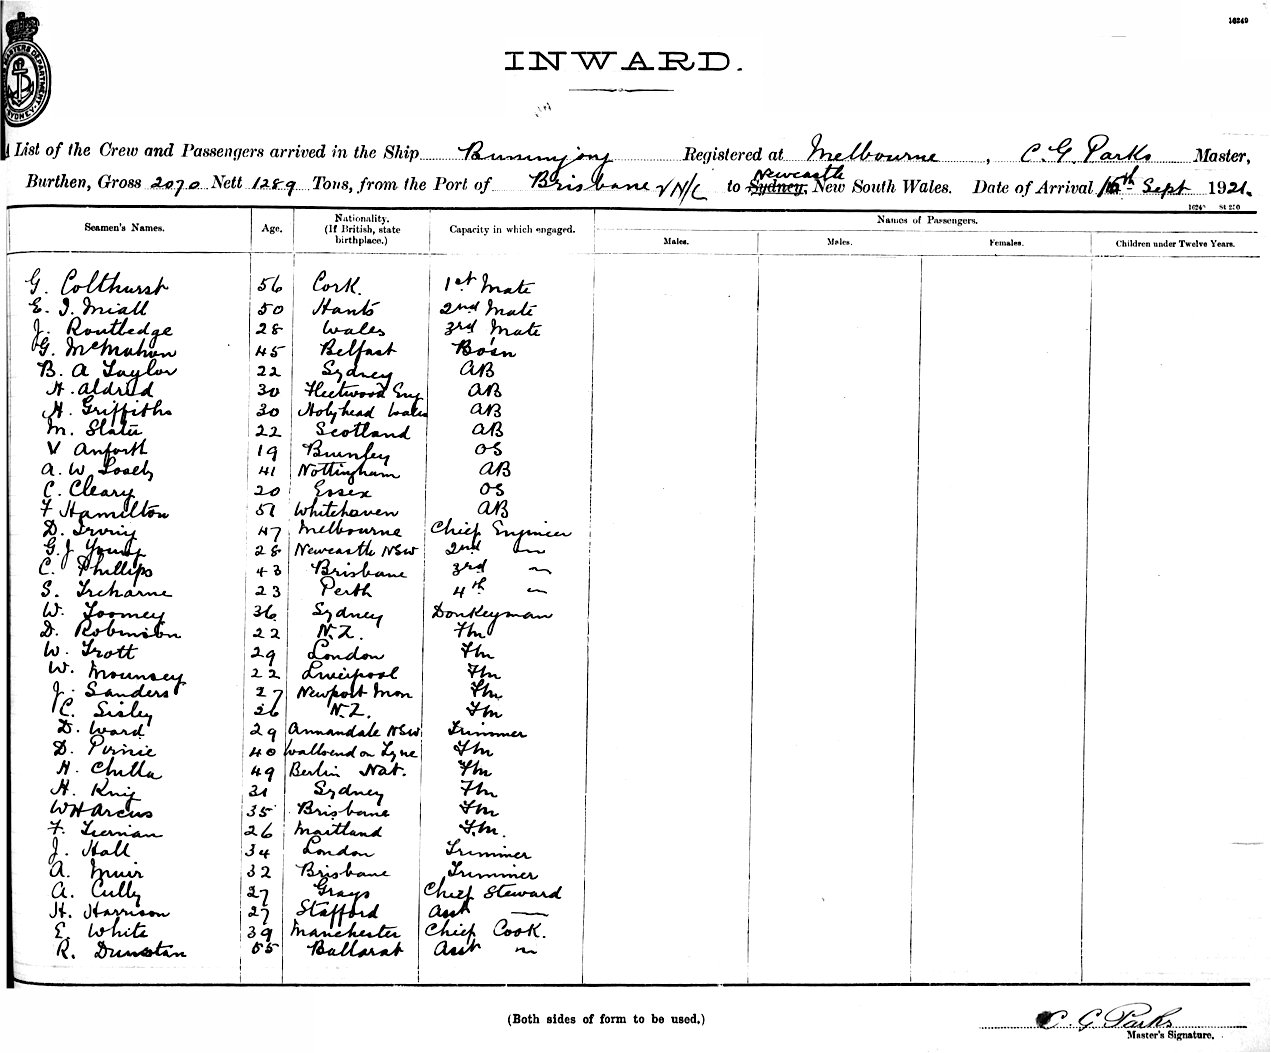 16249
INWARD.
List of the Crew and Passengers arrived in the Ship Buninjong Registered at Melbourne, C. G. Parks Master,
Burthen, Gross 2070 Nett 1289 Tons, from the Port of Brisbane v N/C to Sydney, Newcastle New South Wales. Date of Arrival 16th Sept 1921.
16249 St 210
Seamen's Names. Age. Nationality. (If British, state birthplace.) Capacity in which engaged. Names of Passengers.
Males. Males. Females. Children under Twelve Years.
G. Colthurst 56 Cork 1st Mate
E. J. Miall 50 Hants 2nd Mate
J. Routledge 28 Wales 3rd Mate
G. McMahon 45 Belfast Bosn
B. A Taylor 22 Sydney AB
H. Aldred 30 Fleetwood Eng AB
H. Griffiths 30 Holyhead Wales AB
M. Slater 22 Scotland AB
V Anforth 19 Burnley OS
A. W 41 Nottingham AB
C. Cleary 20 Essex OS
F Hamilton 51 Whitehaven AB
D. Irving 47 Melbourne Chief Engineer
G. J Young 28 Newcastle NSW 2nd "
C. Phillips 43 Brisbane 3rd "
S. Treharne 23 Perth 4th "
W. Toomey 36 Sydney Donkeyman
D. Robinson 22 N.Z. Fm
W. Trott 29 London Fm
W. Mounsey 22 Liverpool Fm
J. Sanders 27 Newport Mon Fm
C. Sisley 26 N.Z. Fm
D. Ward 29 Annandale NSW Trimmer
D. Pirnie 40 Wallsend on Tyne Fm
H. Chilla 49 Berlin Nat. Fm
H. King 31 Sydney Fm
W H Arcus 35 Brisbane Fm
F. Tiernan 26 Maitland F.m.
J. Hall 34 London Trimmer
A. Muir 32 Brisbane Trimmer
A. Cully 27 Grays Chief Steward
H. Harrison 27 Stafford Asst "
E. White 39 Manchester Chief Cook.
R. Dunstan 55 Ballarat Asst "
(Both sides of form to be used.)
C. G. Parks
Master's Signature.